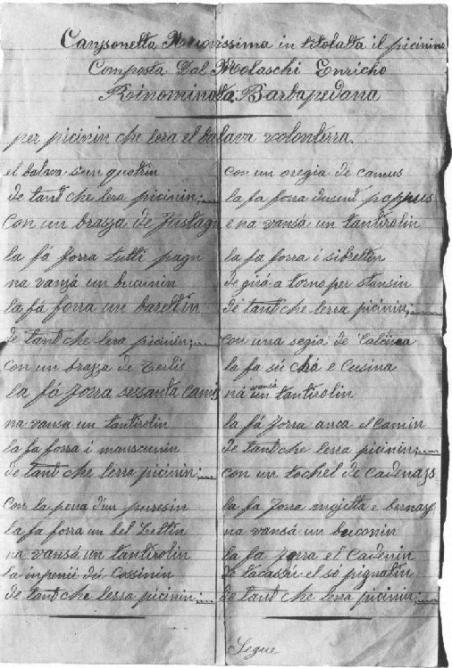 Cansonetta Nuovissima in titolatta il picinin
Composta Dal Molaschi Enricho
Rinominata Barbapedana
per picinin che lera el balava volonterra.
el balava sun quatrin
de tant che lera picinin;
con un brassa de fustagn
la fá forra tutti pagn
na vansá un bucunin
la fá forra un barettin
de tant che lera picinin;
con un brassa de
la fá forra sessanta camis
na vansa un tantirolin
la fa forra i manscunin
de tant che lerra picinin;
con la pena dun puresin
la fa forra un bel lettin
na vansá un tantirolin
la inpenii du Cossinin
de tant che lerra picinin;
con un oregia de camus
la fa forra pappus
e na vansá un tantirolin
la fa forra i sibrettin
de giró a torno per stansin
de tant che lerra picinin;
con una segia de
la fa sú chá e Cusina
ná vansá un tantirolin
la fá forra anca el Camin
de tant che lerra picinin;
con un tochel de Cadenass
la fa forra mojetta e bernass
na vansá un buconin
la fa forra el Cadenin
de tacasú el só pignatin
de tant che lera picinin;
Segue